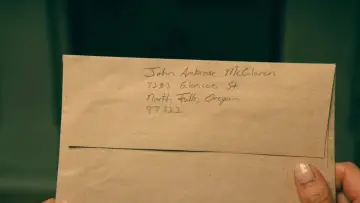 John Ambrose McClaren
7237 Glencoe St
North Falls, Oregon
97322